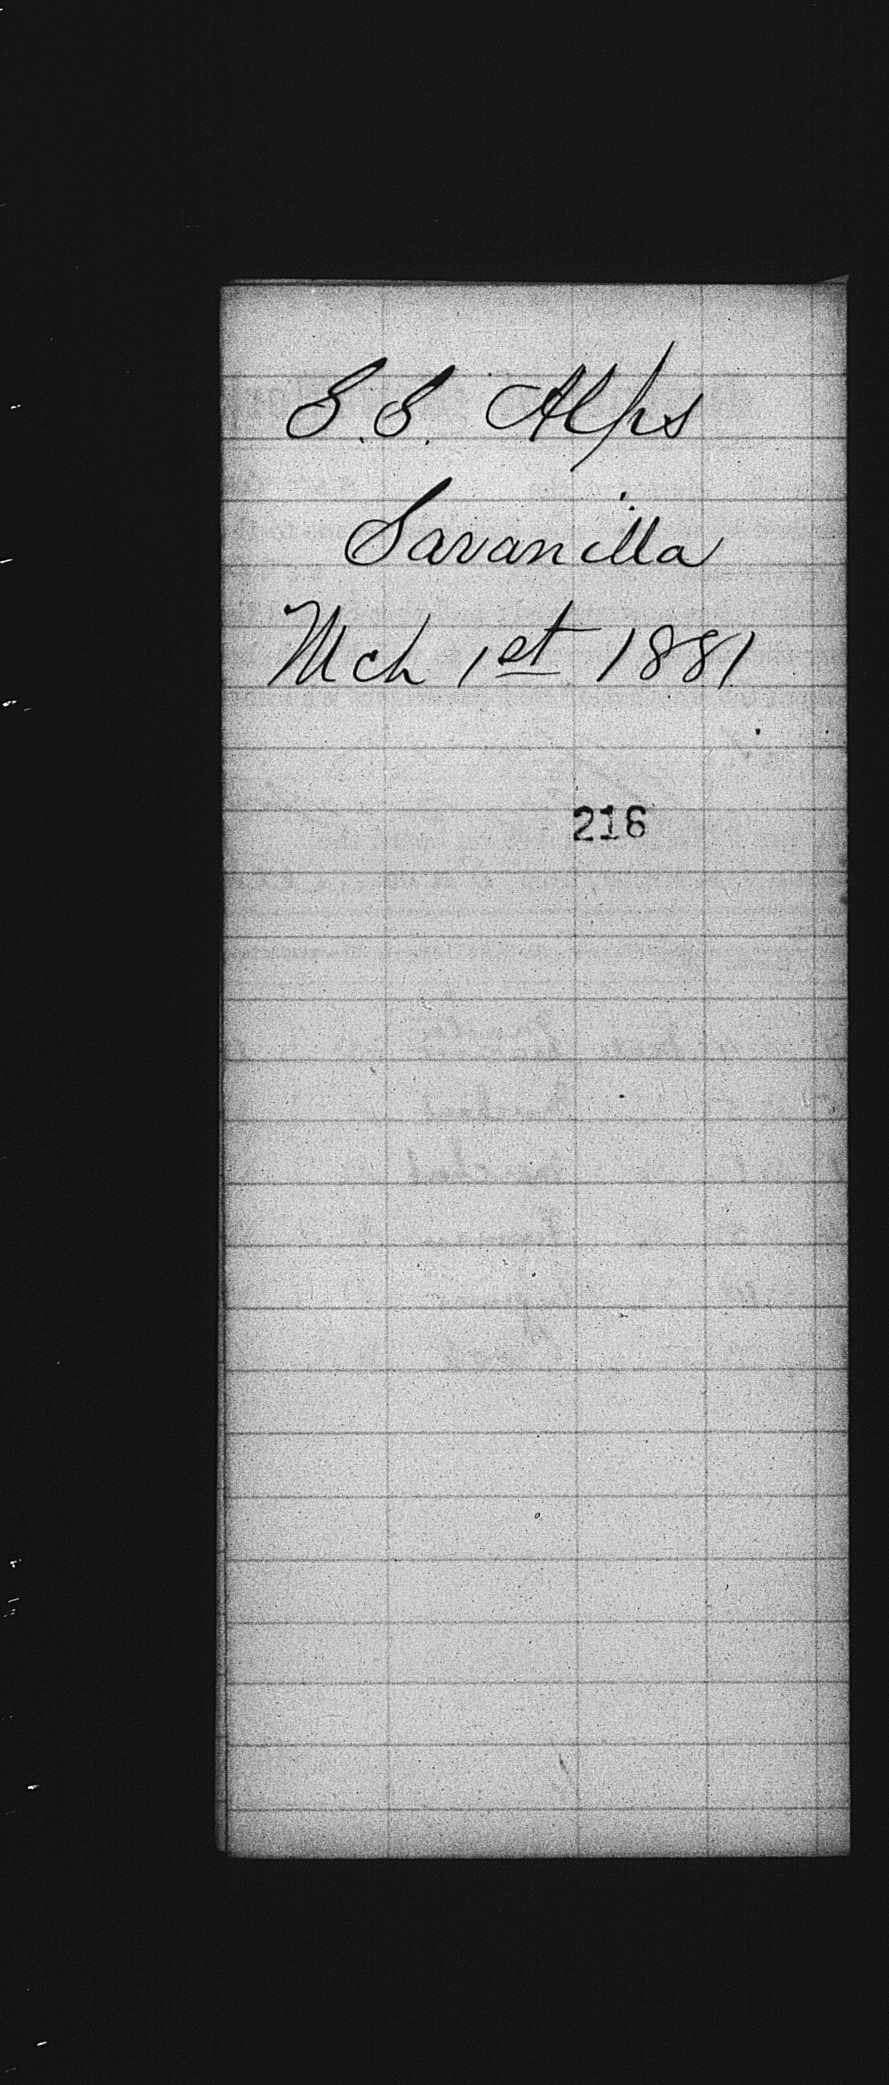 S.S. Alps
Savanilla
Mch 1st 1881
216